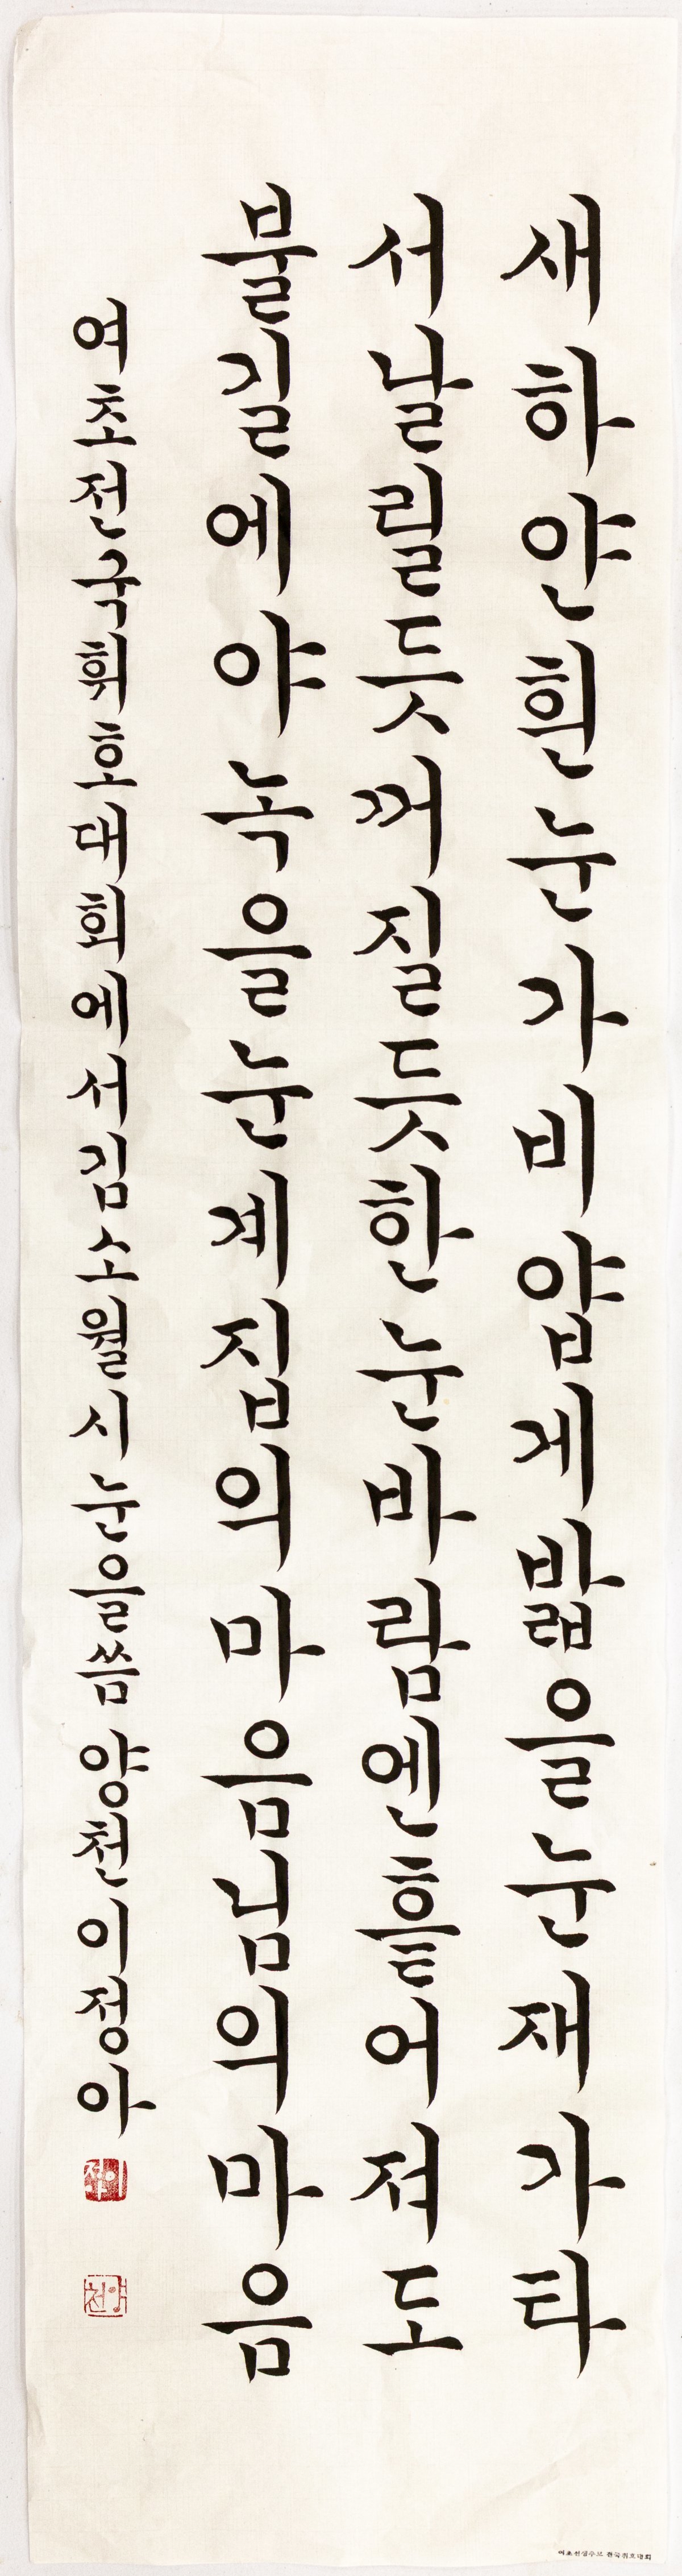 새하얀흰눈가비얍게밟을눈재가타
서날릴듯꺼질듯한눈바람엔흩어져도
불길에야녹을눈계집의마음님의마음
여초전국휘호대회에서김소월시눈을씀 양천이정아
여초선생추모 전국휘호대회